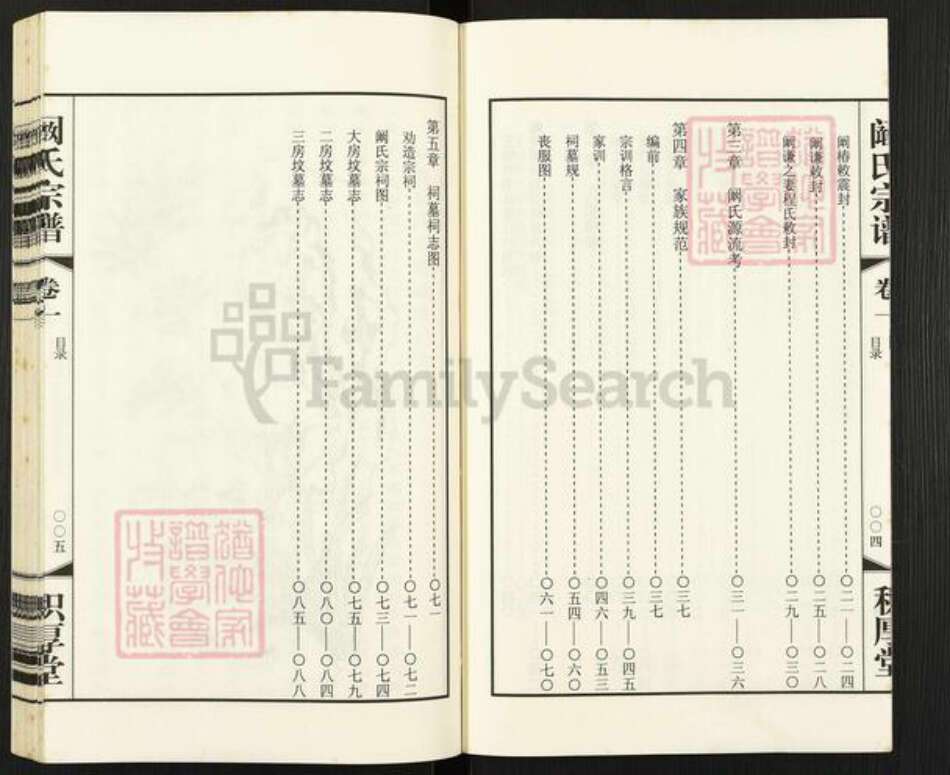 阚氏宗谱
卷一
目录
〇〇四
积厚堂
阚椿敕震封 〇二一——〇二四
阚谦敕封 〇二五——〇二八
阚谦之妻程氏敕封 〇二九——〇三〇
第三章 阚氏源流考 〇三一——〇三六
第四章 家族规范 〇三七
编前 〇三七
宗训格言 〇三九——〇四五
家训 〇四六——〇五三
祠墓规 〇五四——〇六〇
丧服图 〇六一——〇七〇
第五章 祠墓祠志图 〇七一
劝造宗祠 〇七一——〇七二
阚氏宗祠图 〇七三——〇七四
大房坟墓志 〇七五——〇七九
二房坟墓志 〇八〇——〇八四
三房坟墓志 〇八五——〇八八
阚氏宗谱
卷一
目录
〇〇五
积厚堂
FamilySearch